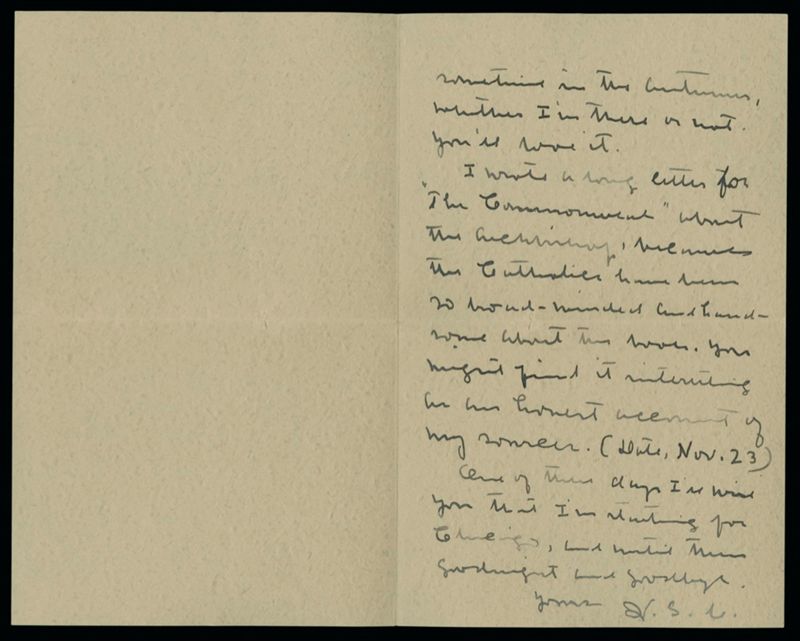 sometime in the Autumn,
whether I'm there or not.
You'll love it.
I wrote a long letter for
"The Commonweal" about
the Archbishop, because
the Catholics have been
so broad-minded and hand-
some about this book. You
might find it interesting
as an honest account of
my sources. (Date, Nov. 23)
One of these days I'll wire
you that I'm starting for
Chicago, and until then
goodnight and goodbye.
Yours W. S. C.